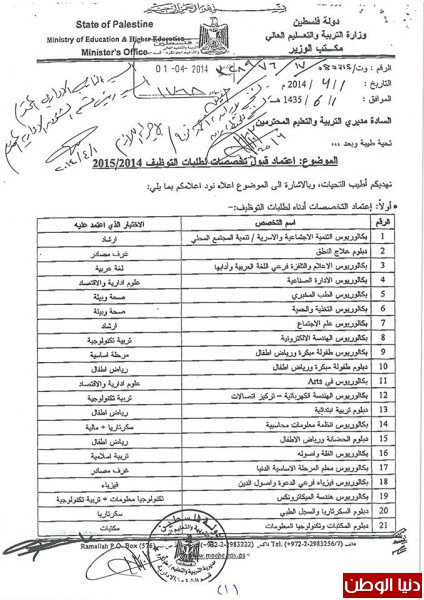 بسم الله الرحمن الرحيم
State of Palestine
Ministry of Education & Higher Education
Minister's Office
دولة فلسطين
وزارة التربية والتعليم العالي
مكتب الوزير
01-04-2014
الرقم: وت/
التاريخ: 1/4/2014م
الموافق: 1/6/1435هـ
السادة مديري التربية والتعليم المحترمين
تحية طيبة وبعد ،،،
الموضوع: اعتماد قبول تخصصات لطلبات التوظيف 2015/2014
نهديكم أطيب التحيات، وبالاشارة الى الموضوع اعلاه نود اعلامكم بما يلي:
• أولاً: اعتماد التخصصات أدناه لطلبات التوظيف:-
الرقم اسم التخصص الاختبار الذي اعتمد عليه
1 بكالوريوس التنمية الاجتماعية والاسرية / تنمية المجتمع المحلي ارشاد
2 دبلوم علاج النطق غرف مصادر
3 بكالوريوس الاعلام والتلفزة فرعي اللغة العربية وآدابها لغة عربية
4 بكالوريوس الادارة الصناعية علوم ادارية والاقتصاد
5 بكالوريوس الطب المخبري صحة وبيئة
6 بكالوريوس التغذية والحمية صحة وبيئة
7 بكالوريوس علم الاجتماع ارشاد
8 بكالوريوس الهندسة الالكترونية تربية تكنولوجية
9 بكالوريوس طفولة مبكرة ورياض اطفال مرحلة اساسية
10 دبلوم طفولة مبكرة ورياض اطفال رياض اطفال
11 بكالوريوس في Arts علوم ادارية والاقتصاد
12 بكالوريوس الهندسة الكهربائية – تركيز اتصالات تربية تكنولوجية
13 دبلوم تربية ابتدائية رياض اطفال
14 بكالوريوس انظمة معلومات محاسبية سكرتاريا + مالية
15 دبلوم الحضانة ورياض الاطفال رياض اطفال
16 بكالوريوس الفقة واصوله تربية اسلامية
17 بكالوريوس معلم المرحلة الاساسية الدنيا غرف مصادر
18 بكالوريوس فيزياء فرعي الدعوة واصول الدين فيزياء
19 بكالوريوس هندسة الميكاترونكس تكنولوجيا معلومات + تربية تكنولوجية
20 دبلوم السكرتاريا والسجل الطبي سكرتاريا
21 بكالوريوس المكتبات وتكنولوجيا المعلومات مكتبات
Ramallah P.O. Box (576)
فاكس (+972-2-2983222) Tel (+972-2-2983256/7) هاتف
www.moehe.gov.ps
(1)
دنيا الوطن